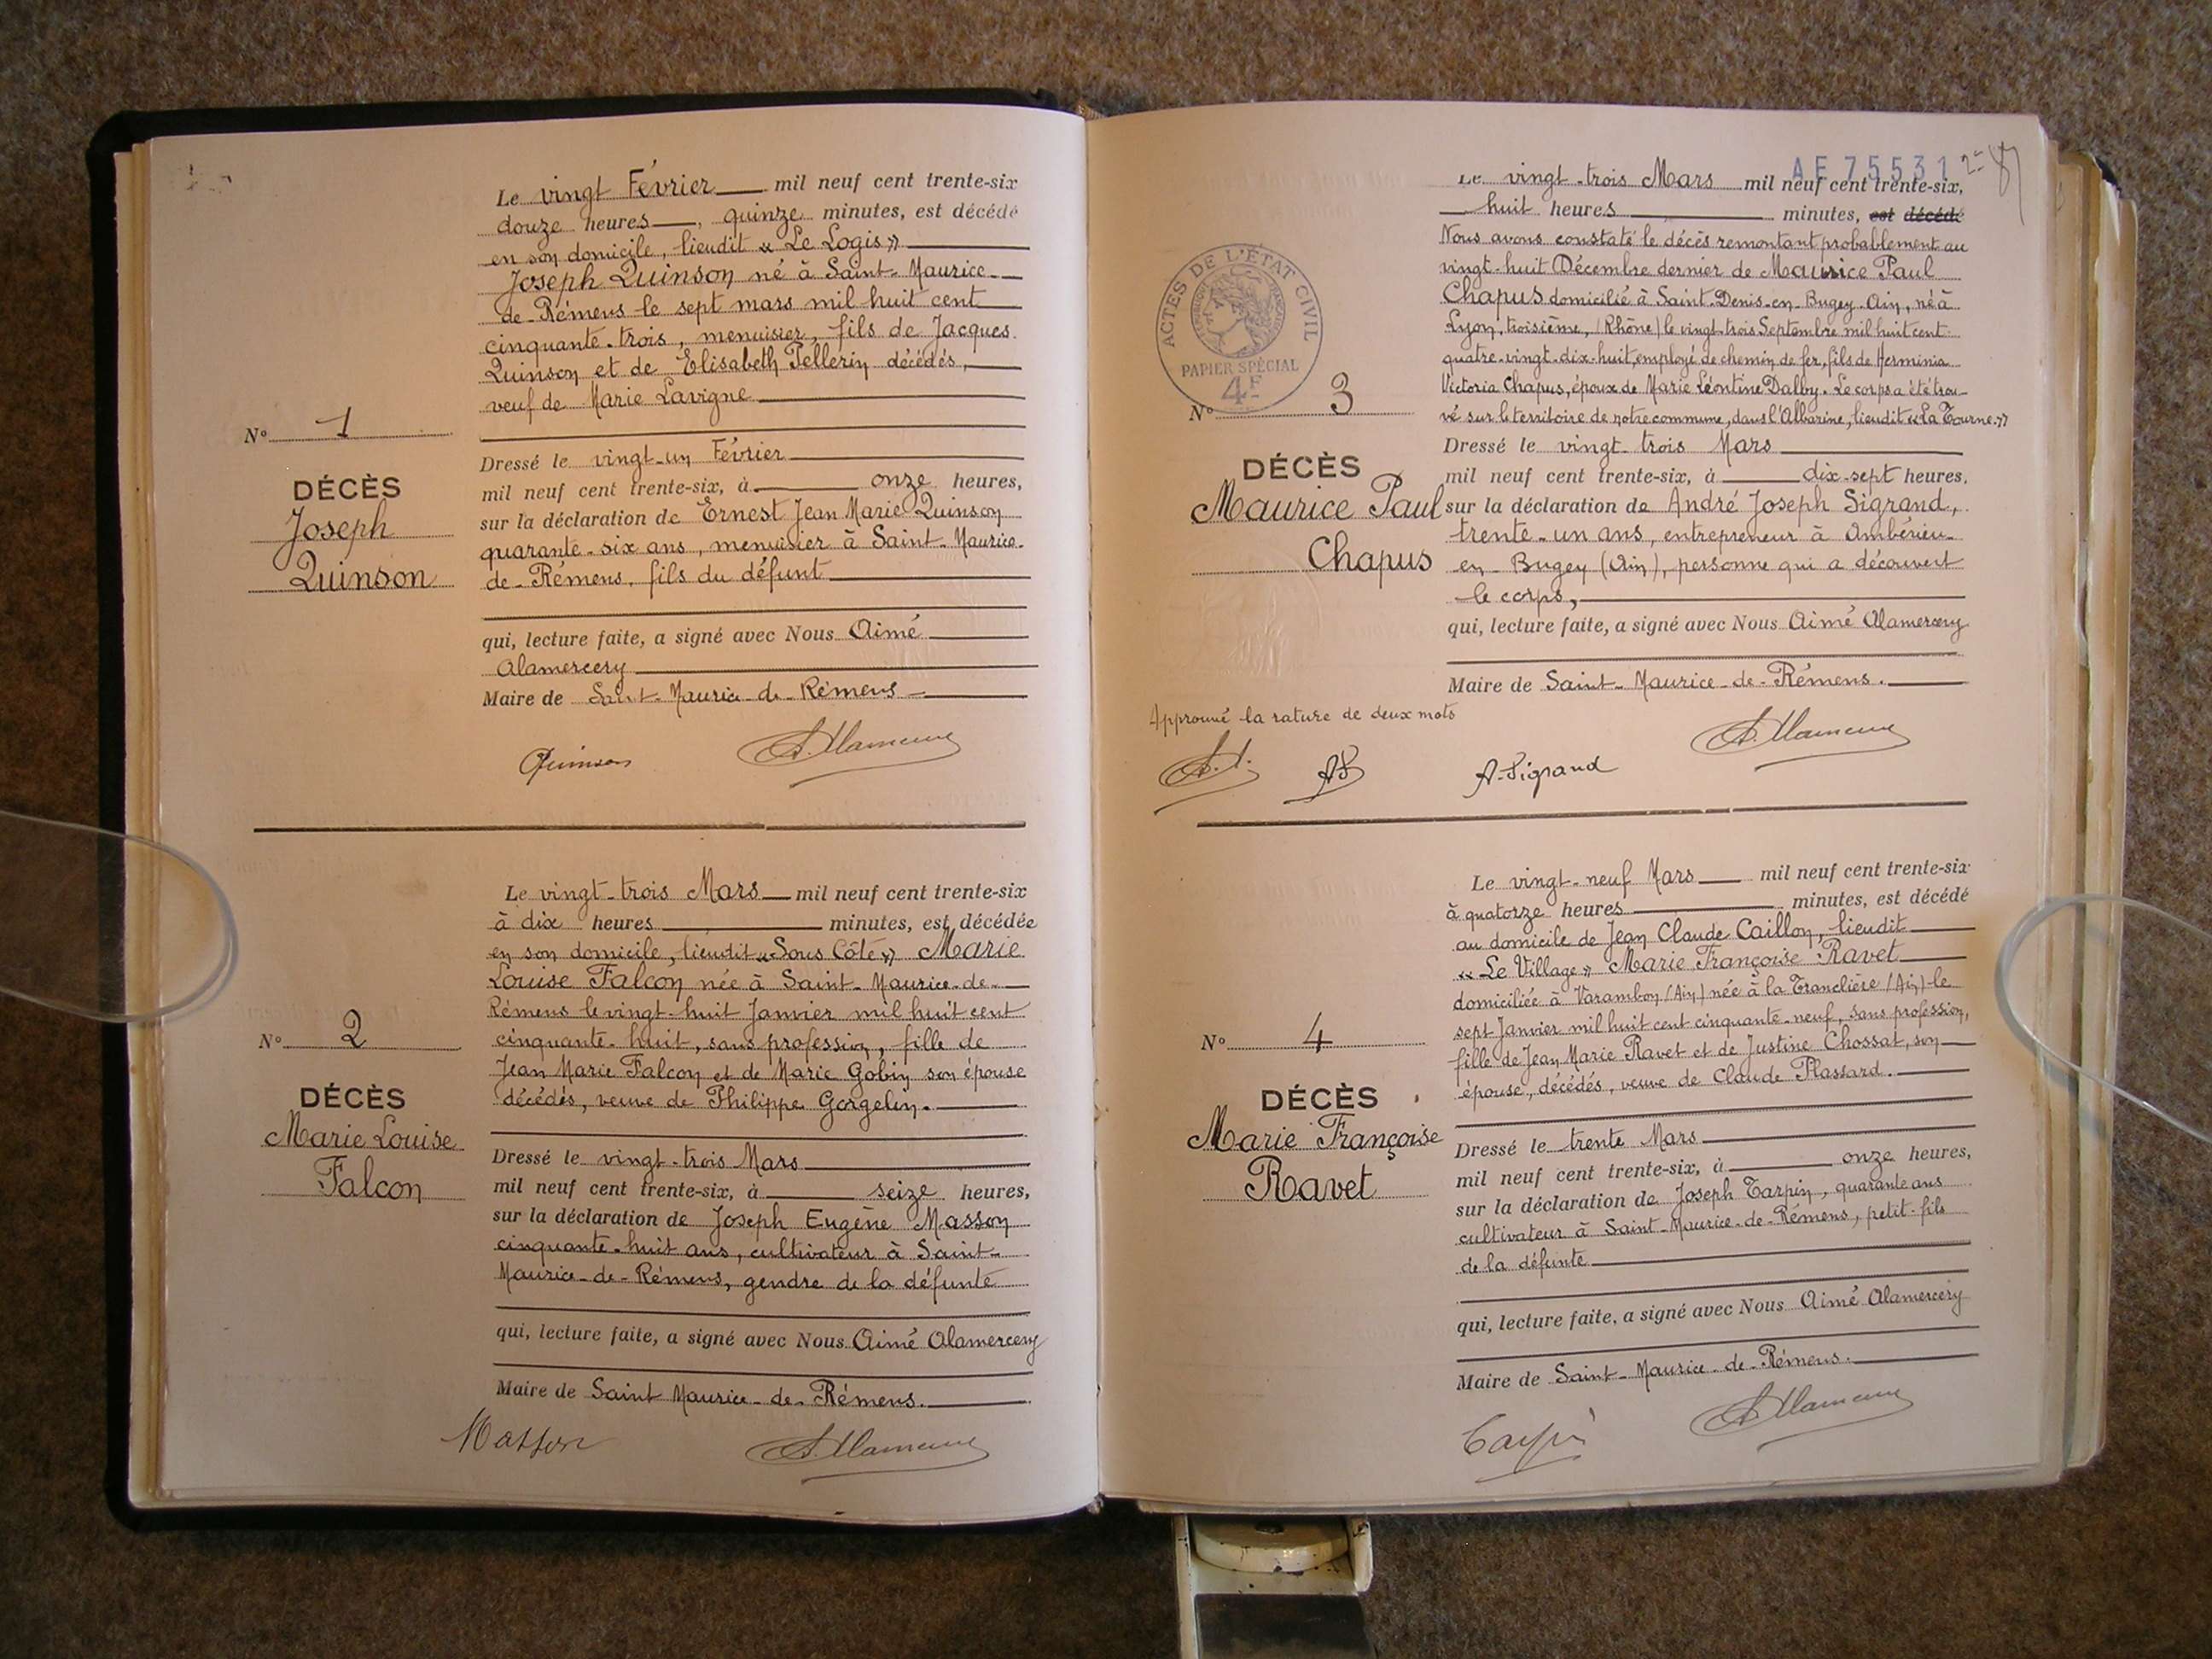 Le vingt Février mil neuf cent trente-six
douze heures, quinze minutes, est décédé
en son domicile, lieudit « Le Logis »
Joseph Quinson né à Saint-Maurice-
de-Rémens le sept mars mil huit cent
cinquante-trois, menuisier, fils de Jacques
Quinson et de Elisabeth Pellerin décédés,
veuf de Marie Lavigne
N° 1
DÉCÈS
Joseph
Quinson
Dressé le vingt-un Février
mil neuf cent trente-six, à onze heures,
sur la déclaration de Ernest Jean Marie Quinson
quarante-six ans, menuisier à Saint-Maurice-
de-Rémens, fils du défunt
qui, lecture faite, a signé avec Nous Aimé
Alamercery
Maire de Saint-Maurice-de-Rémens
Quinson A. Alamercery
Le vingt-trois Mars mil neuf cent trente-six
à dix heures minutes, est décédée
en son domicile, lieudit « Sous Côte » Marie
Louise Falcon née à Saint-Maurice-de-
Rémens le vingt-huit Janvier mil huit cent
cinquante-huit, sans profession, fille de
Jean Marie Falcon et de Marie Gobin son épouse
décédés, veuve de Philippe Gorgelin.
N° 2
DÉCÈS
Marie Louise
Falcon
Dressé le vingt-trois Mars
mil neuf cent trente-six, à seize heures,
sur la déclaration de Joseph Eugène Masson
cinquante-huit ans, cultivateur à Saint-
Maurice-de-Rémens, gendre de la défunte
qui, lecture faite, a signé avec Nous Aimé Alamercery
Maire de Saint Maurice-de-Rémens.
Masson A. Alamercery
AE 75531
Le vingt-trois Mars mil neuf cent trente-six,
huit heures minutes, est décédé
Nous avons constaté le décès remontant probablement au
vingt-huit Décembre dernier de Maurice Paul
Chapus domicilié à Saint-Denis-en-Bugey-Ain, né à
Lyon, troisième, (Rhône) le vingt-trois Septembre mil huit cent
quatre-vingt-dix-huit, employé de chemin de fer, fils de Herminia
Victoria Chapus, époux de Marie Léontine Dalby. Le corps a été trou-
vé sur le territoire de notre commune, dans l'Albarine, lieudit « La Tourne. »
ACTES DE L'ÉTAT CIVIL
PAPIER SPÉCIAL
4F
N° 3
DÉCÈS
Maurice Paul
Chapus
Dressé le vingt-trois Mars
mil neuf cent trente-six, à dix-sept heures,
sur la déclaration de André Joseph Sigrand,
trente-un ans, entrepreneur à Ambérieu-
en-Bugey (Ain), personne qui a découvert
le corps,
qui, lecture faite, a signé avec Nous Aimé Alamercery
Maire de Saint-Maurice-de-Rémens.
Approuvé la rature de deux mots
A. A. AS A. Sigrand A. Alamercery
Le vingt-neuf Mars mil neuf cent trente-six
à quatorze heures minutes, est décédé
au domicile de Jean Claude Caillon, lieudit
« Le Village » Marie Françoise Ravet
domiciliée à Varambon (Ain) née à la Tranclière (Ain) le
sept Janvier mil huit cent cinquante-neuf, sans profession,
fille de Jean Marie Ravet et de Justine Chossat, son
épouse, décédés, veuve de Claude Plassard.
N° 4
DÉCÈS
Marie Françoise
Ravet
Dressé le trente Mars
mil neuf cent trente-six, à onze heures,
sur la déclaration de Joseph Tarpin, quarante ans
cultivateur à Saint-Maurice-de-Rémens, petit-fils
de la défunte
qui, lecture faite, a signé avec Nous Aimé Alamercery
Maire de Saint-Maurice-de-Rémens.
Tarpin A. Alamercery